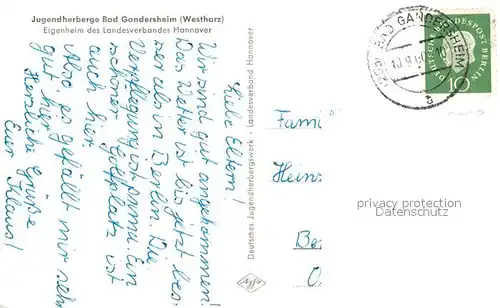 Jugendherberge Bad Gandersheim (Westharz)
Eigenheim des Landesverbandes Hannover
Liebe Eltern!
Wir sind gut angekommen!
Das Wetter ist bis jetzt bes-
ser als in Berlin. Die
Verpflegung ist prima. Ein
schöner Golfplatz ist
auch hier.
Also es gefällt mir sehr
gut hier.
Herzliche Grüße
Euer Klaus!
Deutsches Jugendherbergswerk - Landesverband Hannover
Agfa
BAD GANDERSHEIM
DEUTSCHE BUNDESPOST BERLIN
10
a
Fami
Heinz
Be
privacy protection
Datenschutz